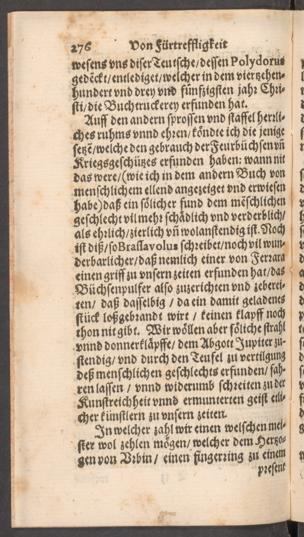 276 Von Fürtreffligkeit
wesens vns diser Teutsche/ dessen Polydorus
gedēckt/ entlediget/ welcher in dem viertzehen-
hundert vnd drey vnd fünfzigsten jahr Chri-
sti/ die Buchtruckerey erfunden hat.
Auff den andern sprossen vnd staffel herrli-
ches ruhms vnnd ehren/ köndte ich die jenige
setzē/ welche den gebrauch der Feurbüchsen vñ
Kriegsgeschützes erfunden haben: wann nit
das were/ (wie ich in dem andern Buch von
menschlichem ellend angezeiget vnd erwiesen
habe) daß ein sölicher fund dem mēschlichen
geschlecht vil mehr schädlich vnd verderblich/
als ehrlich/ zierlich vñ wolanstendig ist. Noch
ist diß/ so Brassavolus schreibet/ noch vil wun-
derbarlicher/ daß nemlich einer von Ferrara
einen griff zu vnsern zeiten erfunden hat/ das
Büchsenpulfer also zuzerichten vnd zeberei-
ten/ daß dasselbig/ da ein damit geladenes
stück loßgebrandt wirt/ keinen klapff noch
thon nit gibt. Wir wöllen aber söliche strahl
vnnd donnerkläpffe/ dem Abgott Jupiter zu-
stendig/ vnd durch den Teufel zu vertilgung
deß menschlichen geschlechts erfunden/ fah-
ren lassen/ vnnd widerumb schreiten zu der
Kunstreichheit vnnd ermunterten geist etli-
cher künstlern zu vnsern zeiten.
In welcher zahl wir einen welschen mei-
ster wol zehlen mögen/ welcher dem Hertzo-
gen von Vrbin/ einen fingerring zu einem
present